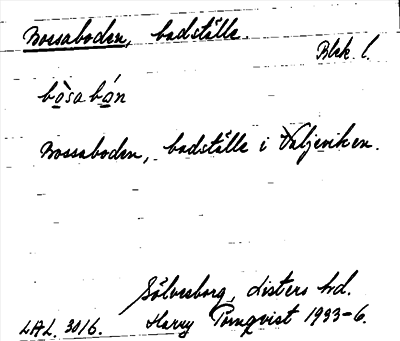 Bossaboden, badställe.
Blek. l.
bòsabón
Bossaboden, badställe i Valjeviken.
Sölvesborg, Listers hd.
LAL. 3016. Harry Törnqvist 1933-6.